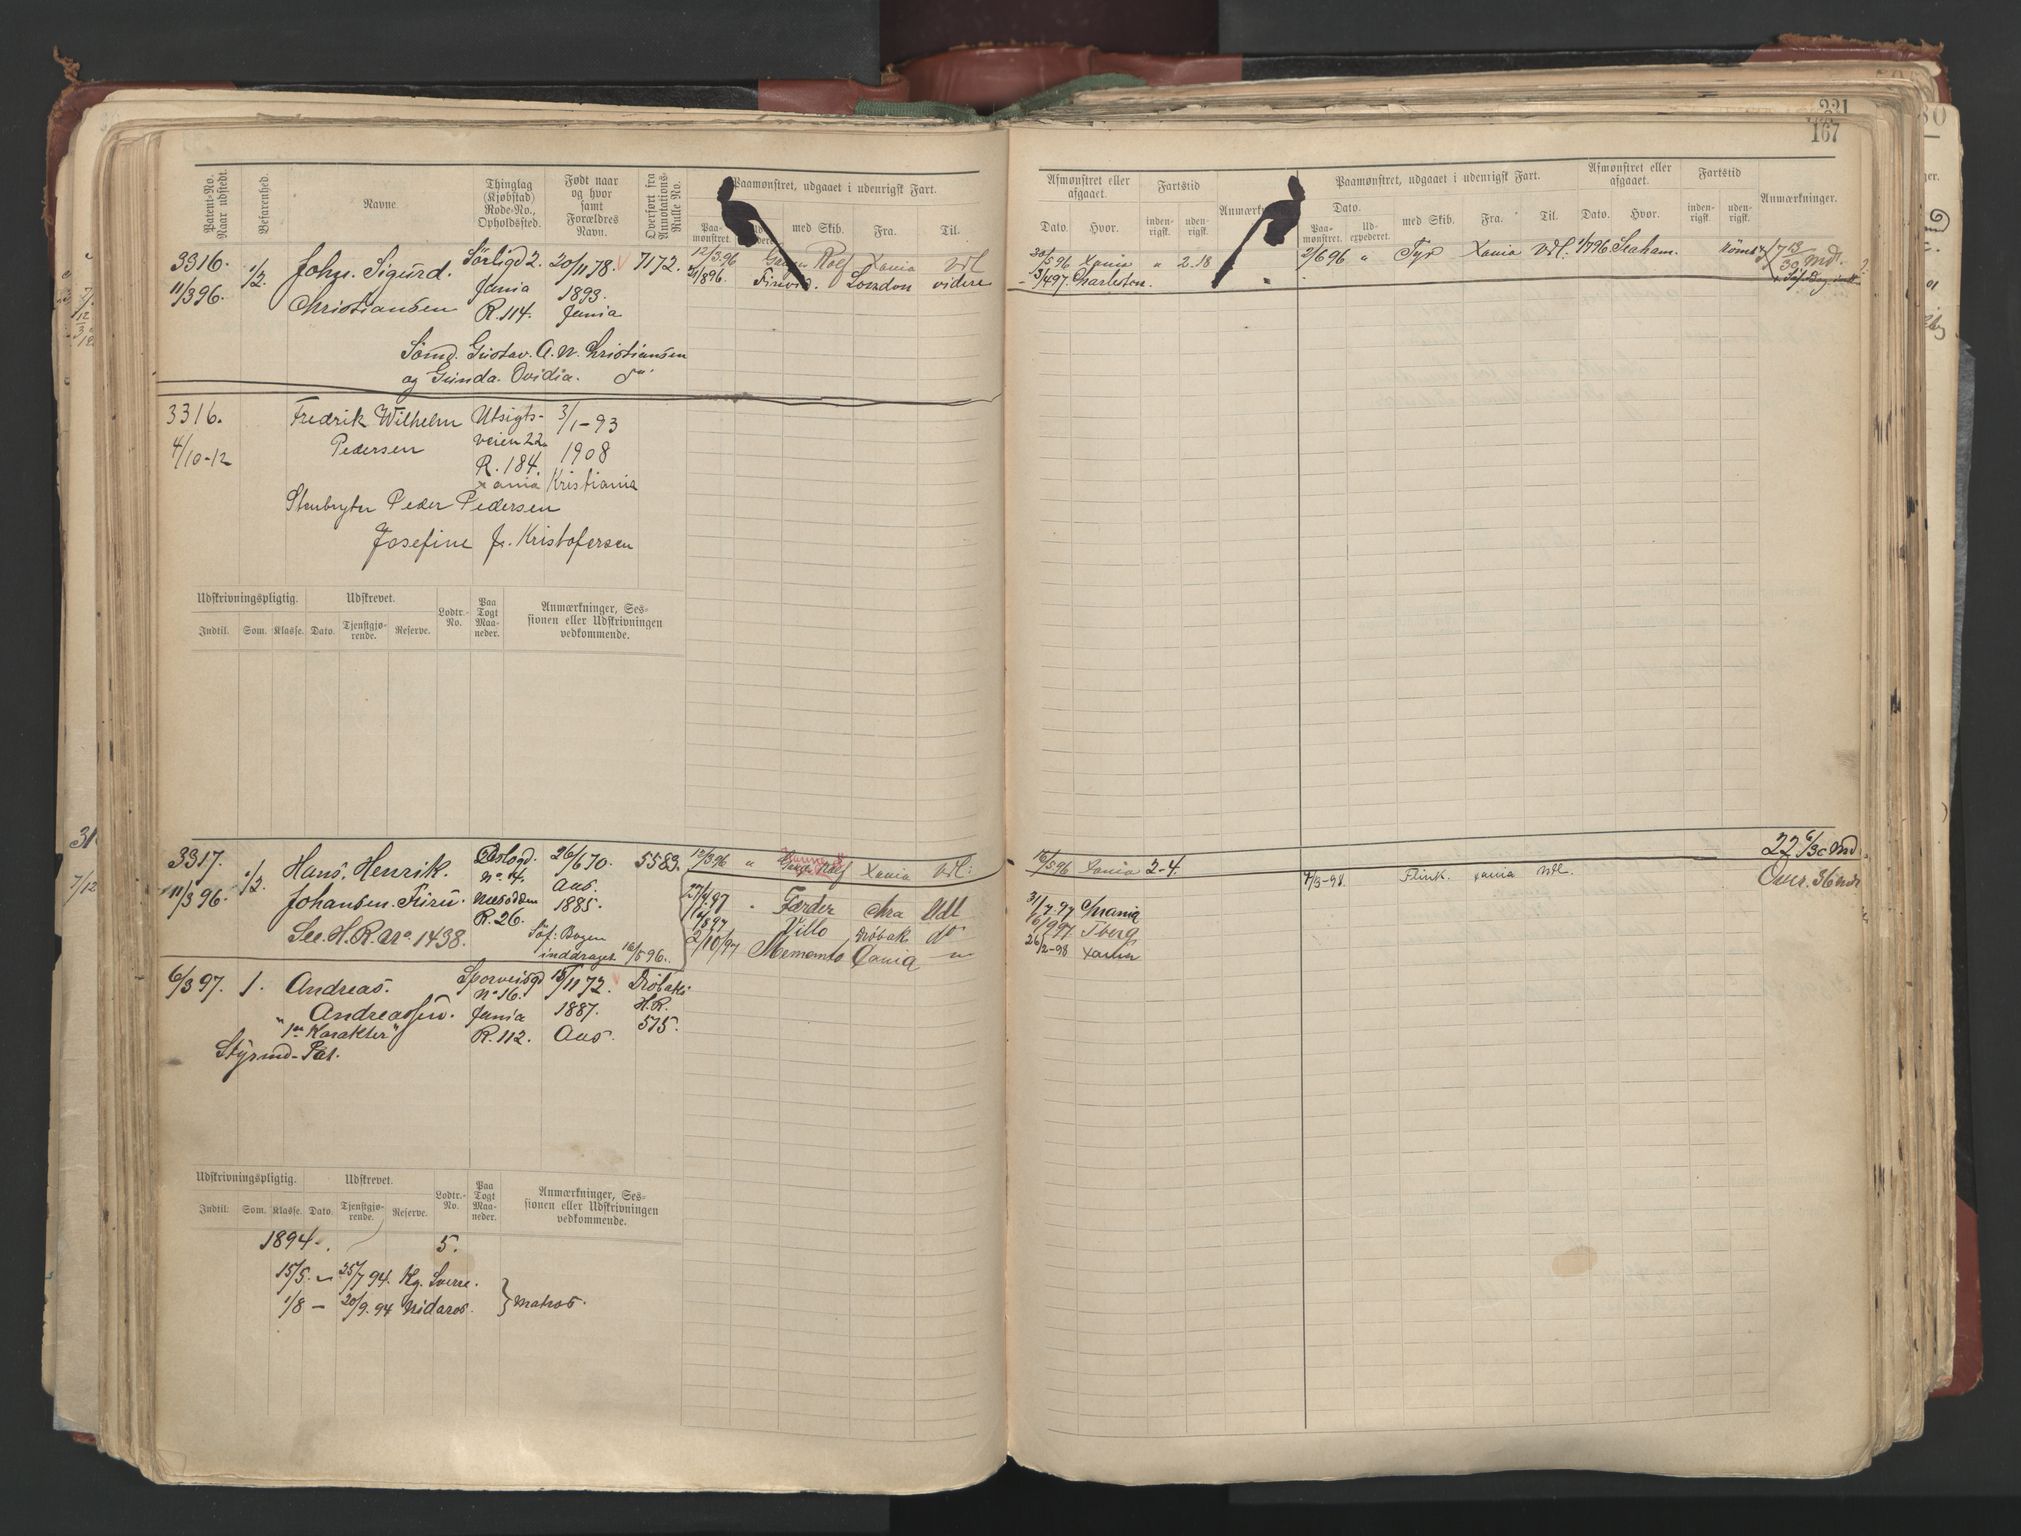 221
167
Patent-No. Naar udstedt.
Befarenhed.
Navne.
Thinglag (Kjøbstad) Rode-No., Opholdssted.
Født naar og hvor samt Forældres Navn.
Overført fra Annotations-Rulle No.
Paamønstret, udgaaet i udenrigsk Fart.
Paamønstret.
med Skib.
Fra.
Til.
3316.
11/3 96.
1/2
Johan Sigurd.
Christiansen
Sörligd 2.
R. 114.
20/11 78.
1893.
7172.
Sömd. Gustav. A. N. Christiansen
og Gunda. Ovidia.
12/3 96 Rolf Xania Udl
London videre
3316.
4/10-12
Fredrik Wilhelm
Pedersen
Utsigts-
veien 22.
R. 184.
Xania
3/1-93
1908
Kristiania
Stenbryter Peder Pedersen
Josefine J. Kristofersen
Udskrivningspligtig.
Udskrevet.
Indtil. Som. Klasse. Dato. Tjenstgjørende. Reserve.
Lodtr.-No.
Paa Togt Maaneder.
Anmærkninger, Sessionen eller Udskrivningen vedkommende.
3317.
11/3 96.
1/2.
Hans. Henrik.
Johansen. Furu.
See. H. R. No 1438.
Oslogd.
No 14.
Næsodden
R. 26.
26/6 70.
Aas.
1885.
Söf: Bogen
inddraget 16/5 96.
5583.
12/3 96 " Rolf Xania Udl:
Færder Chra Udl
Tillo Dröbak do
2/10/97 Memento Xania "
6/3 97.
1.
Andreas.
Andreassen.
"1ste Karakter"
Styrmd-Pat.
Sporveisgd
No 16.
R. 112.
15/11 72.
1887.
Aas.
Dröbaks
H. R.
515.
Udskrivningspligtig.
Udskrevet.
Indtil. Som. Klasse. Dato. Tjenstgjørende. Reserve.
Lodtr.-No.
Paa Togt Maaneder.
Anmærkninger, Sessionen eller Udskrivningen vedkommende.
1894. 5.
15/5. - 25/7 94. Kg. Sverre.
1/8 - 20/9. 94 Nidaros. } Matros.
Afmønstret eller afgaaet.
Dato. Hvor.
Fartstid
indenrigsk. udenrigsk.
Paamønstret, udgaaet i udenrigsk Fart.
Dato.
Paamønstret. Udexpederet.
med Skib. Fra. Til.
Afmønstret eller afgaaet.
Dato. Hvor.
Fartstid
indenrigsk. udenrigsk.
Anmærkninger.
30/5 96 Xania " 2. 18
13/4 97. Charleston.
2/6 96 " Tyr Xania Udl. 1/7 96 Seaham.
Rømt
16/5 96 Xania 2-4.
31/7. 97 Chrania
Tberg
26/2-98
Flink. Xania Udl.
22 6/30 Md
Over. 36 mdr